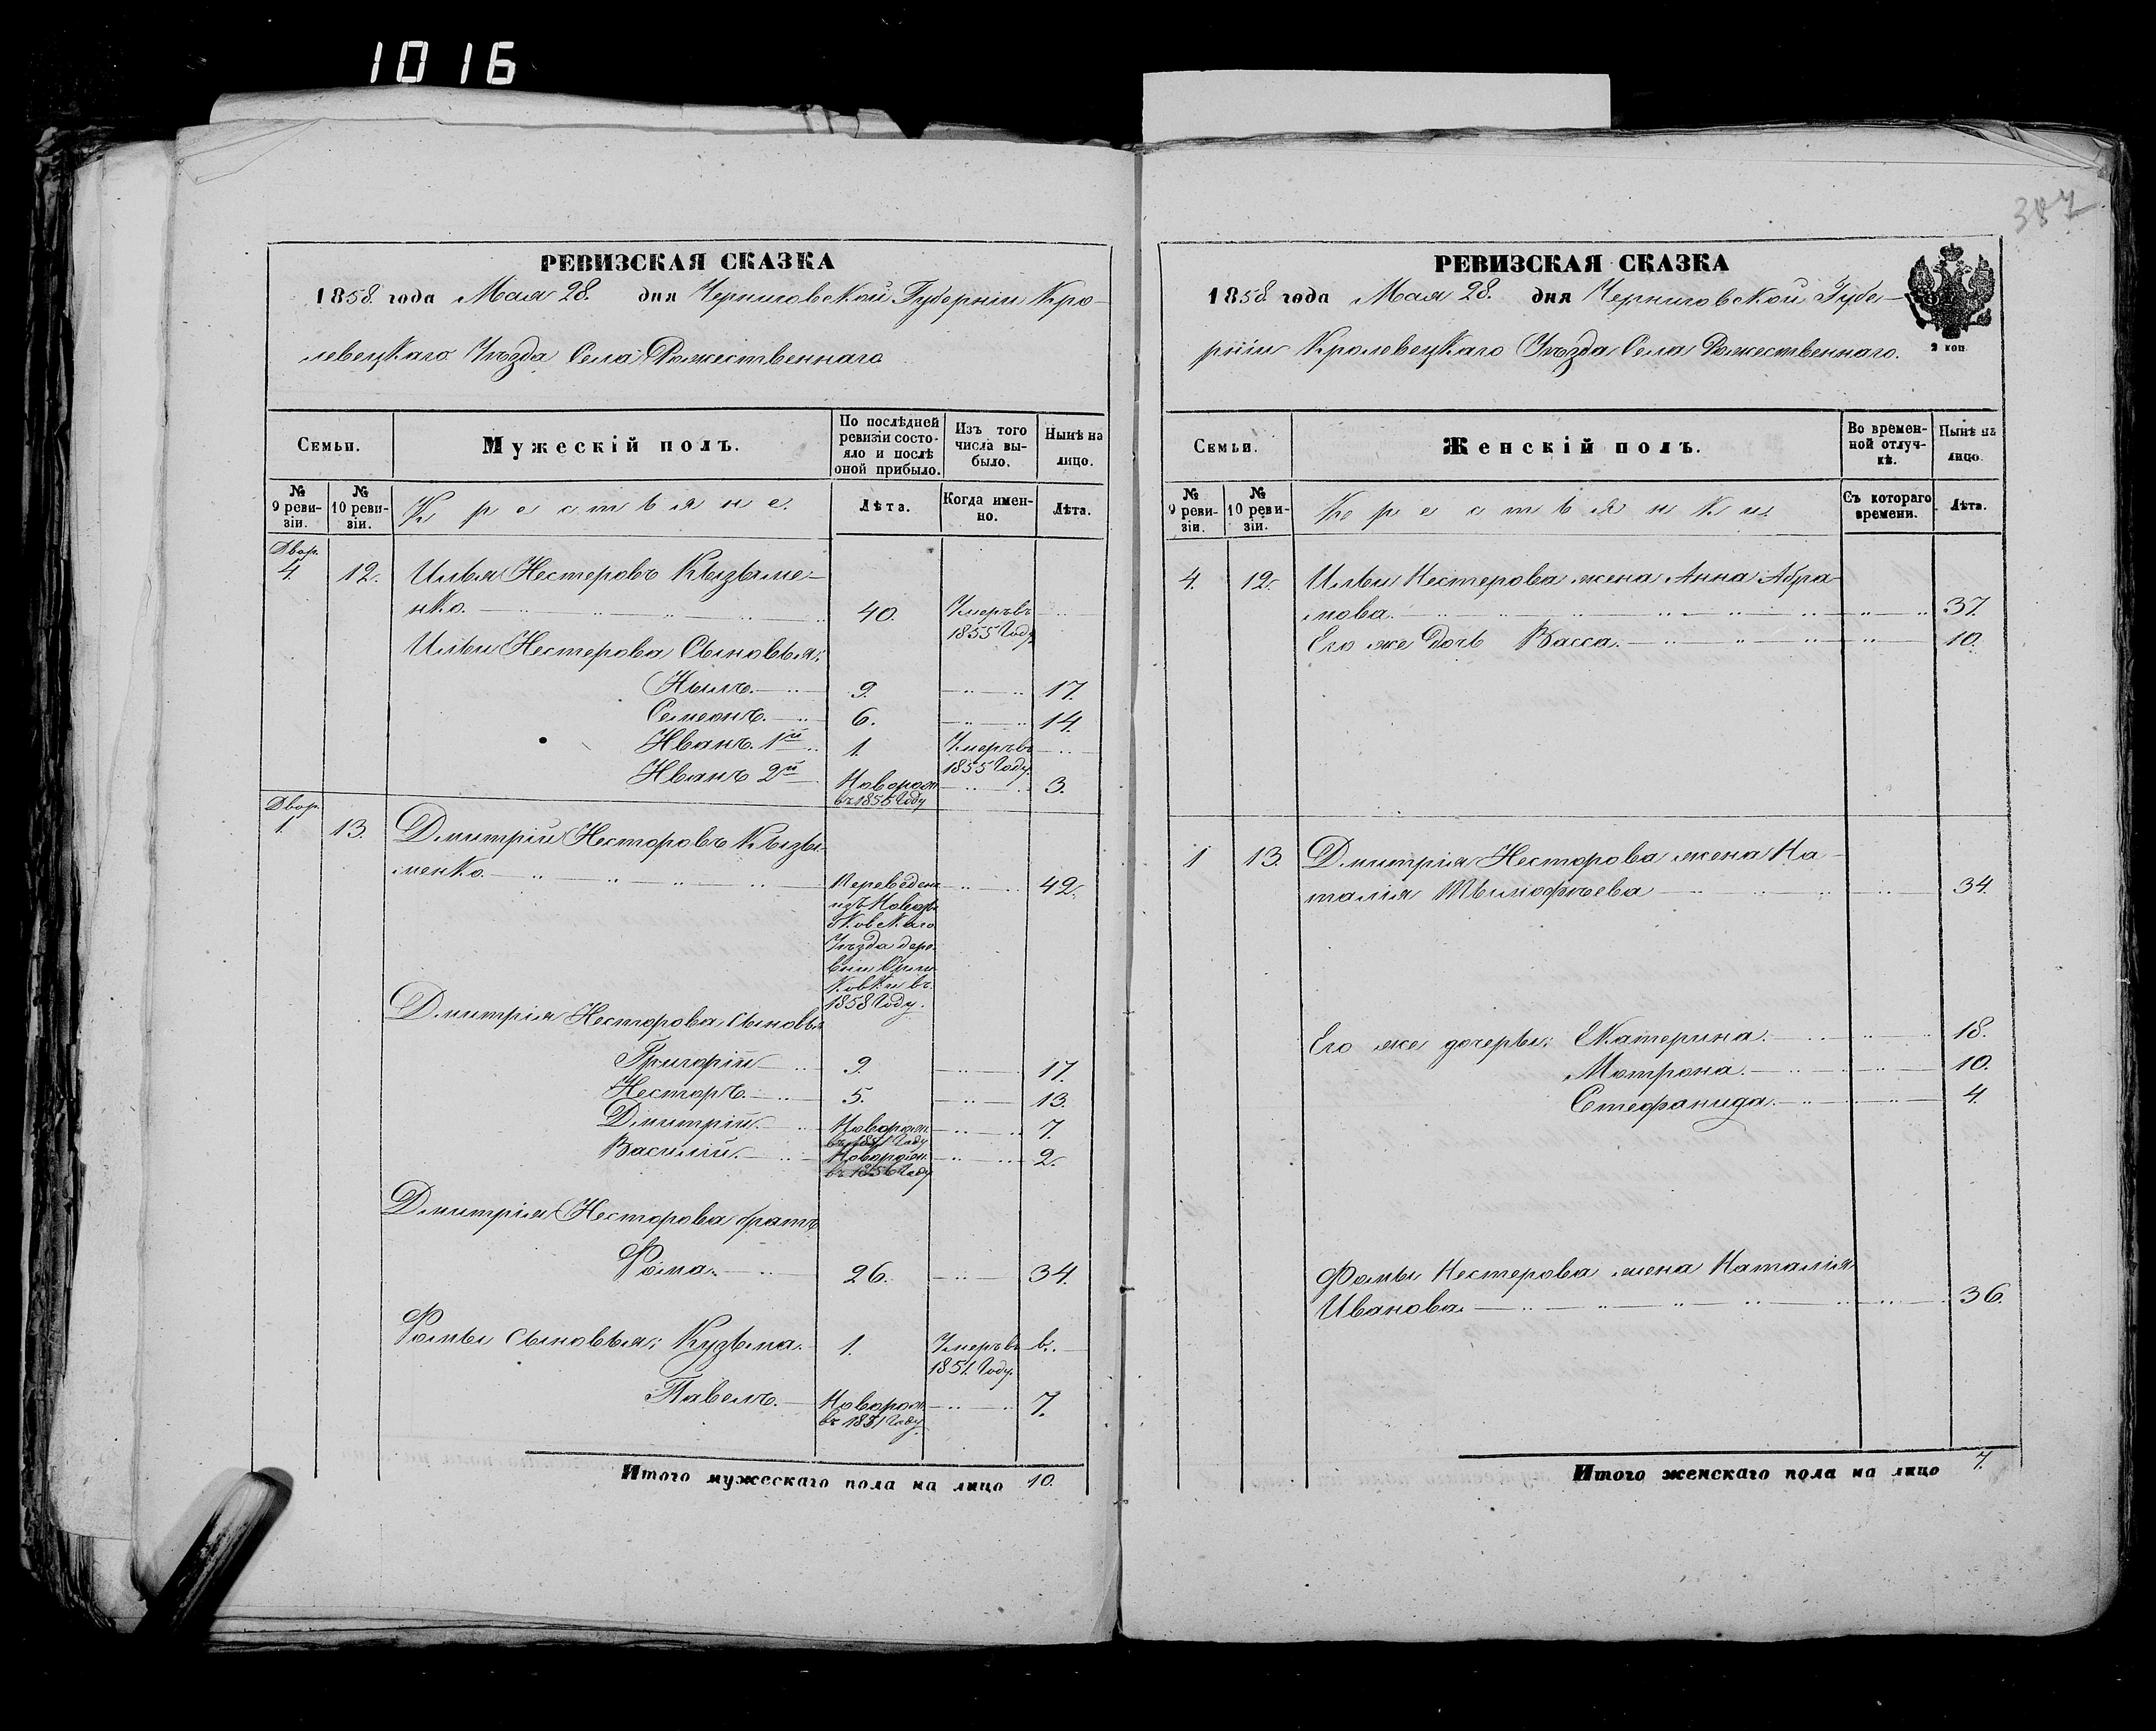 1016
387
РЕВИЗСКАЯ СКАЗКА
1858 года Мая 28. дня Черниговской Губерніи Кро-
левецкаго Уѣзда Села Рожественнаго
Семьи.
Мужескій полъ.
По послѣдней ревизіи состо-
яло и послѣ оной прибыло.
Изъ того числа вы-
было.
Нынѣ на лицо.
№ 9 реви-
зіи.
№ 10 реви-
зіи.
Крестьяне.
Лѣта.
Когда имен-
но.
Лѣта.
Двор.
4. 12. Илья Нестеровъ Кызыме-
нко. 40. Умеръ въ
1855 Году
Ильи Нестерова Сыновья:
Нылъ. 9. 17.
Семеонъ. 6. 14.
Иванъ. 1й 1. Умеръ въ
1855 Году.
Иванъ 2й Новорож. 3.
въ 1855 Году
Двор.
1. 13. Дмитрій Несторовъ Кызы-
менко. Переведенъ 42.
изъ Новозыб-
ковскаго
Уѣзда дере-
вни
ковки въ
1858 Году.
Дмитрія Несторова Сыновья
Григорій 9. 17.
Несторъ. 5. 13.
Дмитрій. Новорож. 7.
въ 1851 Году
Василій. Новорож. 2.
въ 1856 Году
Дмитрія Несторова братъ
Фома. 26. 34.
Фомы сыновья: Кузьма. 1. Умеръ въ в.
1851. Году.
Павелъ. Новорож. 7.
въ 1851 Году.
Итого мужескаго пола на лицо 10.
РЕВИЗСКАЯ СКАЗКА
1858 года Мая 28. дня Черниговской Губе-
рніи Кролевецкаго Уѣзда Села Рожественнаго.
2 коп
Семьи.
Женскій полъ.
Во времен-
ной отлуч-
кѣ.
Нынѣ на лицо.
№ 9 реви-
зіи.
№ 10 реви-
зіи.
Крестьянки.
Съ котораго времени.
Лѣта.
4. 12. Ильи Нестерова жена Анна Абра-
мова. 37.
Его же дочь Васса. 10.
1 13 Дмитрія Несторова жена На-
талія Тымофѣева 34.
Его же дочеры: Екатерина. 18.
Мотрона. 10.
Стефанида. 4.
Фомы Нестерова жена Наталія
Иванова. 36.
Итого женскаго пола на лицо 7.